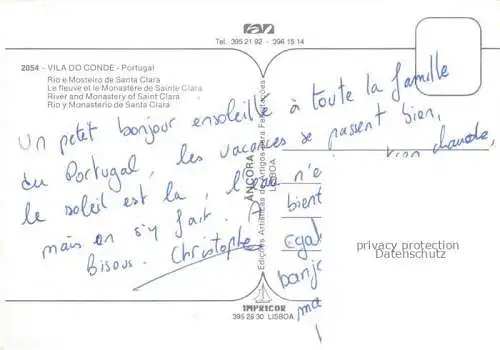 ran
Tel. 395 21 92 - 396 15 14
2054 - VILA DO CONDE - Portugal
Rio e Mosteiro de Santa Clara
Le fleuve et le Monastère de Sainte Clara
River and Monastery of Saint Clara
Rio y Monasterio de Santa Clara
Un petit bonjour ensoleillé à toute la famille
du Portugal, les vacances se passent bien,
le soleil est la, l'eau n'e bien chaude,
mais on s'y fait. A bient
Bisous. Christophe
egal
banjo
ma
ÂNCORA
LISBOA
Edições Artísticas de Amigos para Recordações
privacy protection
Datenschutz
IMPRICOR
395 26 30 LISBOA